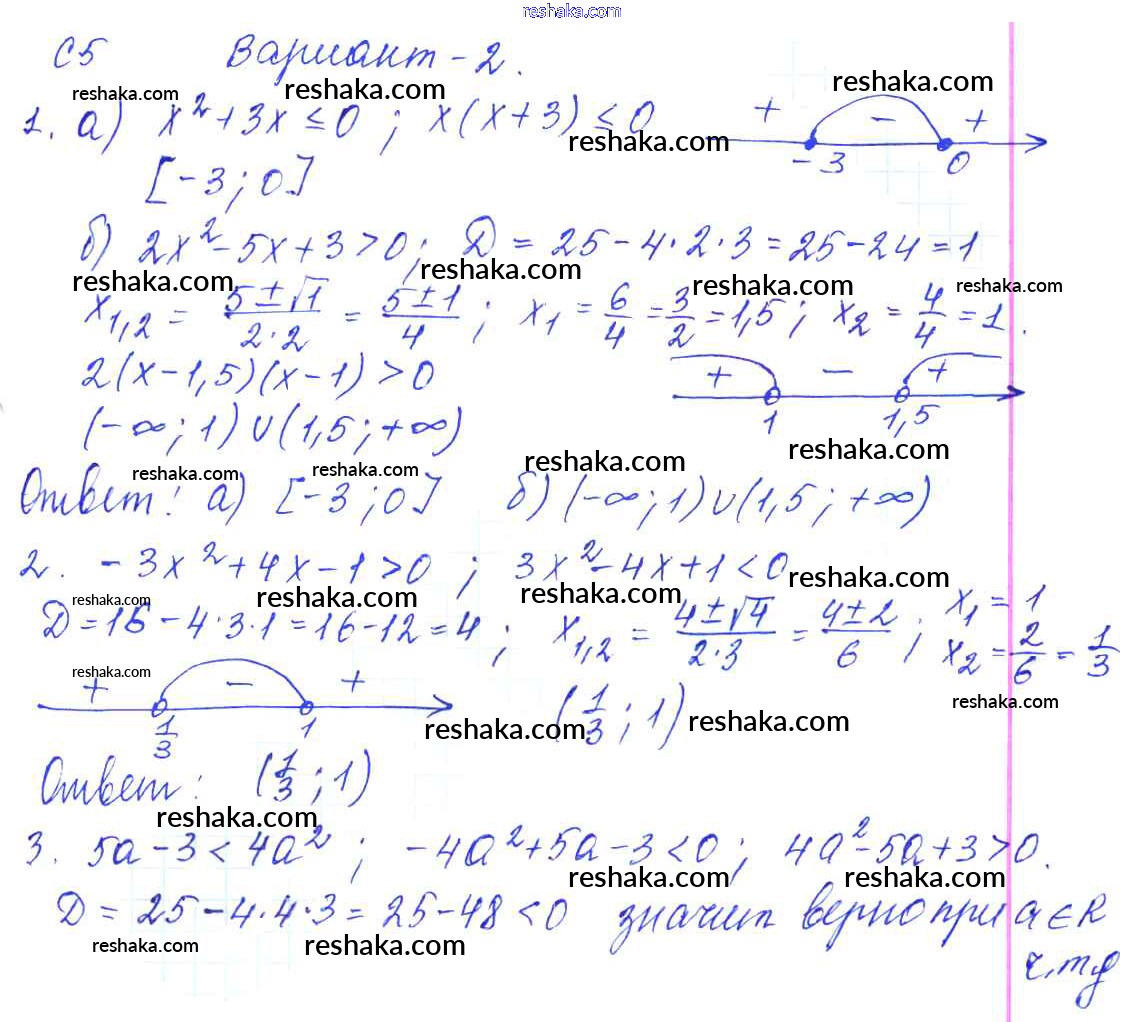 reshaka.com
С5 Вариант - 2.
reshaka.com reshaka.com reshaka.com
1. а) x² + 3x ≤ 0 ; x(x+3) ≤ 0 + - +
reshaka.com
-3 0
[-3; 0]
б) 2x² - 5x + 3 > 0; D = 25 - 4·2·3 = 25 - 24 = 1
reshaka.com reshaka.com reshaka.com reshaka.com
x₁,₂ = (5 ± √1)/(2·2) = (5 ± 1)/4 ; x₁ = 6/4 = 3/2 = 1,5 ; x₂ = 4/4 = 1.
2(x - 1,5)(x - 1) > 0 + - +
1 1,5
(-∞; 1) ∪ (1,5; +∞)
reshaka.com reshaka.com reshaka.com reshaka.com
Ответ: а) [-3; 0] б) (-∞; 1) ∪ (1,5; +∞)
2. -3x² + 4x - 1 > 0 ; 3x² - 4x + 1 < 0
reshaka.com reshaka.com reshaka.com reshaka.com
D = 16 - 4·3·1 = 16 - 12 = 4 ; x₁,₂ = (4 ± √4)/(2·3) = (4 ± 2)/6 ; x₁ = 1
x₂ = 2/6 = 1/3
reshaka.com reshaka.com
+ - +
1/3 1 (1/3; 1)
reshaka.com reshaka.com
Ответ: (1/3; 1)
reshaka.com
3. 5a - 3 < 4a² ; -4a² + 5a - 3 < 0; 4a² - 5a + 3 > 0.
reshaka.com reshaka.com
D = 25 - 4·4·3 = 25 - 48 < 0 значит верно при a ∈ R
reshaka.com reshaka.com
ч.тд